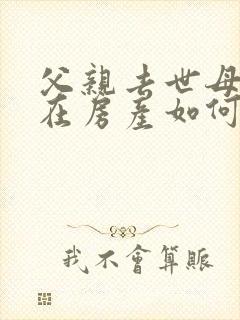 父親去世母
在房產如何
我不會算賬